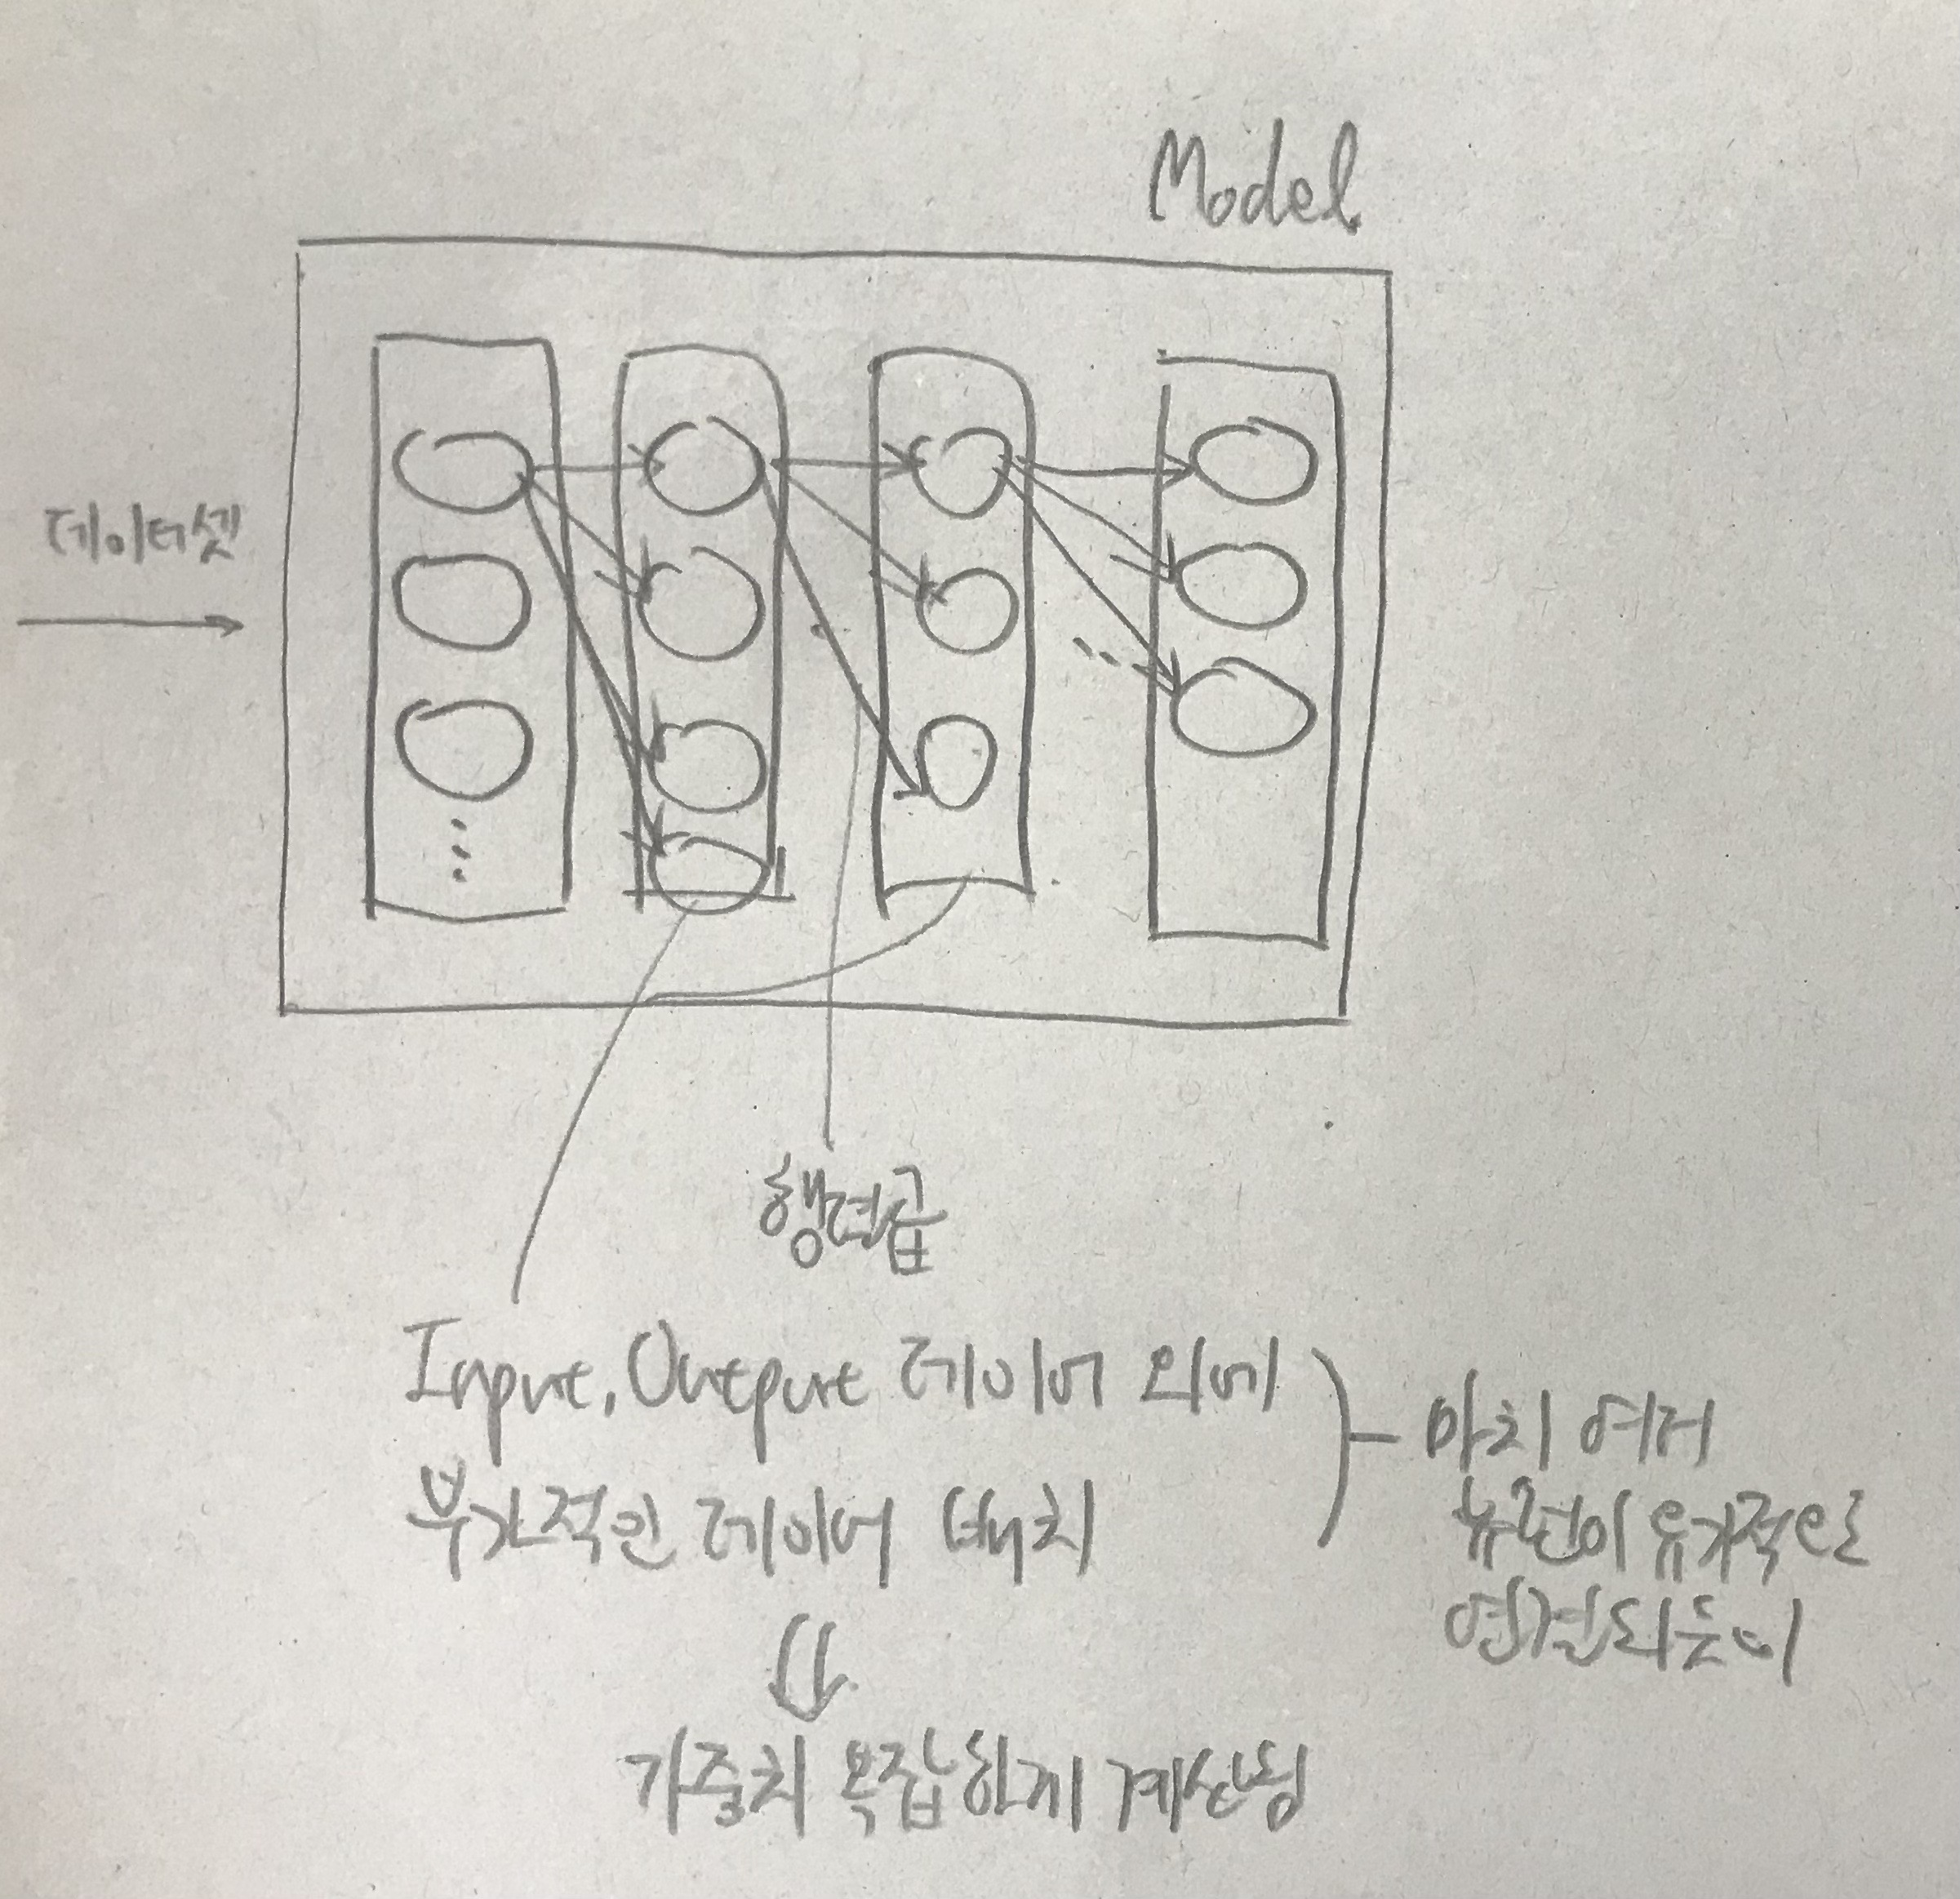 Model
데이터셋
행렬곱
Input, Output 레이어 외에
부가적인 레이어 배치
마치 여러
뉴런이 유기적으로
연결되듯이
가중치 복잡하게 계산됨